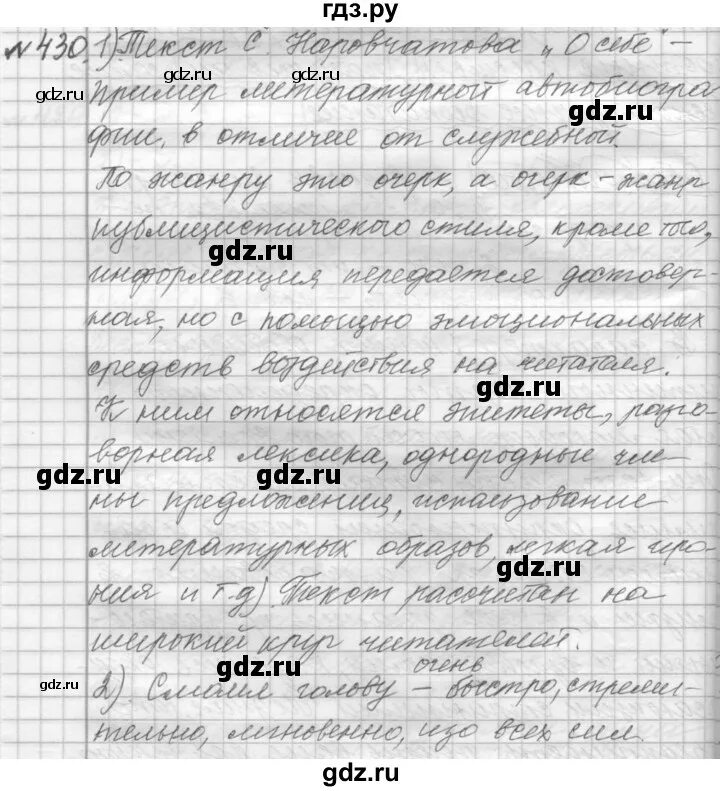 гдз.ру
№430. 1) Текст С. Наровчатова „О себе" –
gdz.ru gdz.ru
gdz.ru пример литературной автобиогра
gdz.ru
фии, в отличие от служебной.
По жанру это очерк, а очерк – жанр
публицистического стиля, кроме то,
gdz.ru gdz.ru
информация передается достовер-
ная, но с помощью эмоциональных
средств воздействия на читателя.
gdz.ru
К ним относятся эпитеты, разго-
ворная лексика, однородные чле-
gdz.ru gdz.ru
ны предложения, использование
литературных образов, легкая иро-
gdz.ru
ния и т.д.) Текст рассчитан на
широкий круг читателей.
gdz.ru очень
gdz.ru 2) Сломя голову – быстро, стреми-
тельно, мгновенно, изо всех сил.
gdz.ru